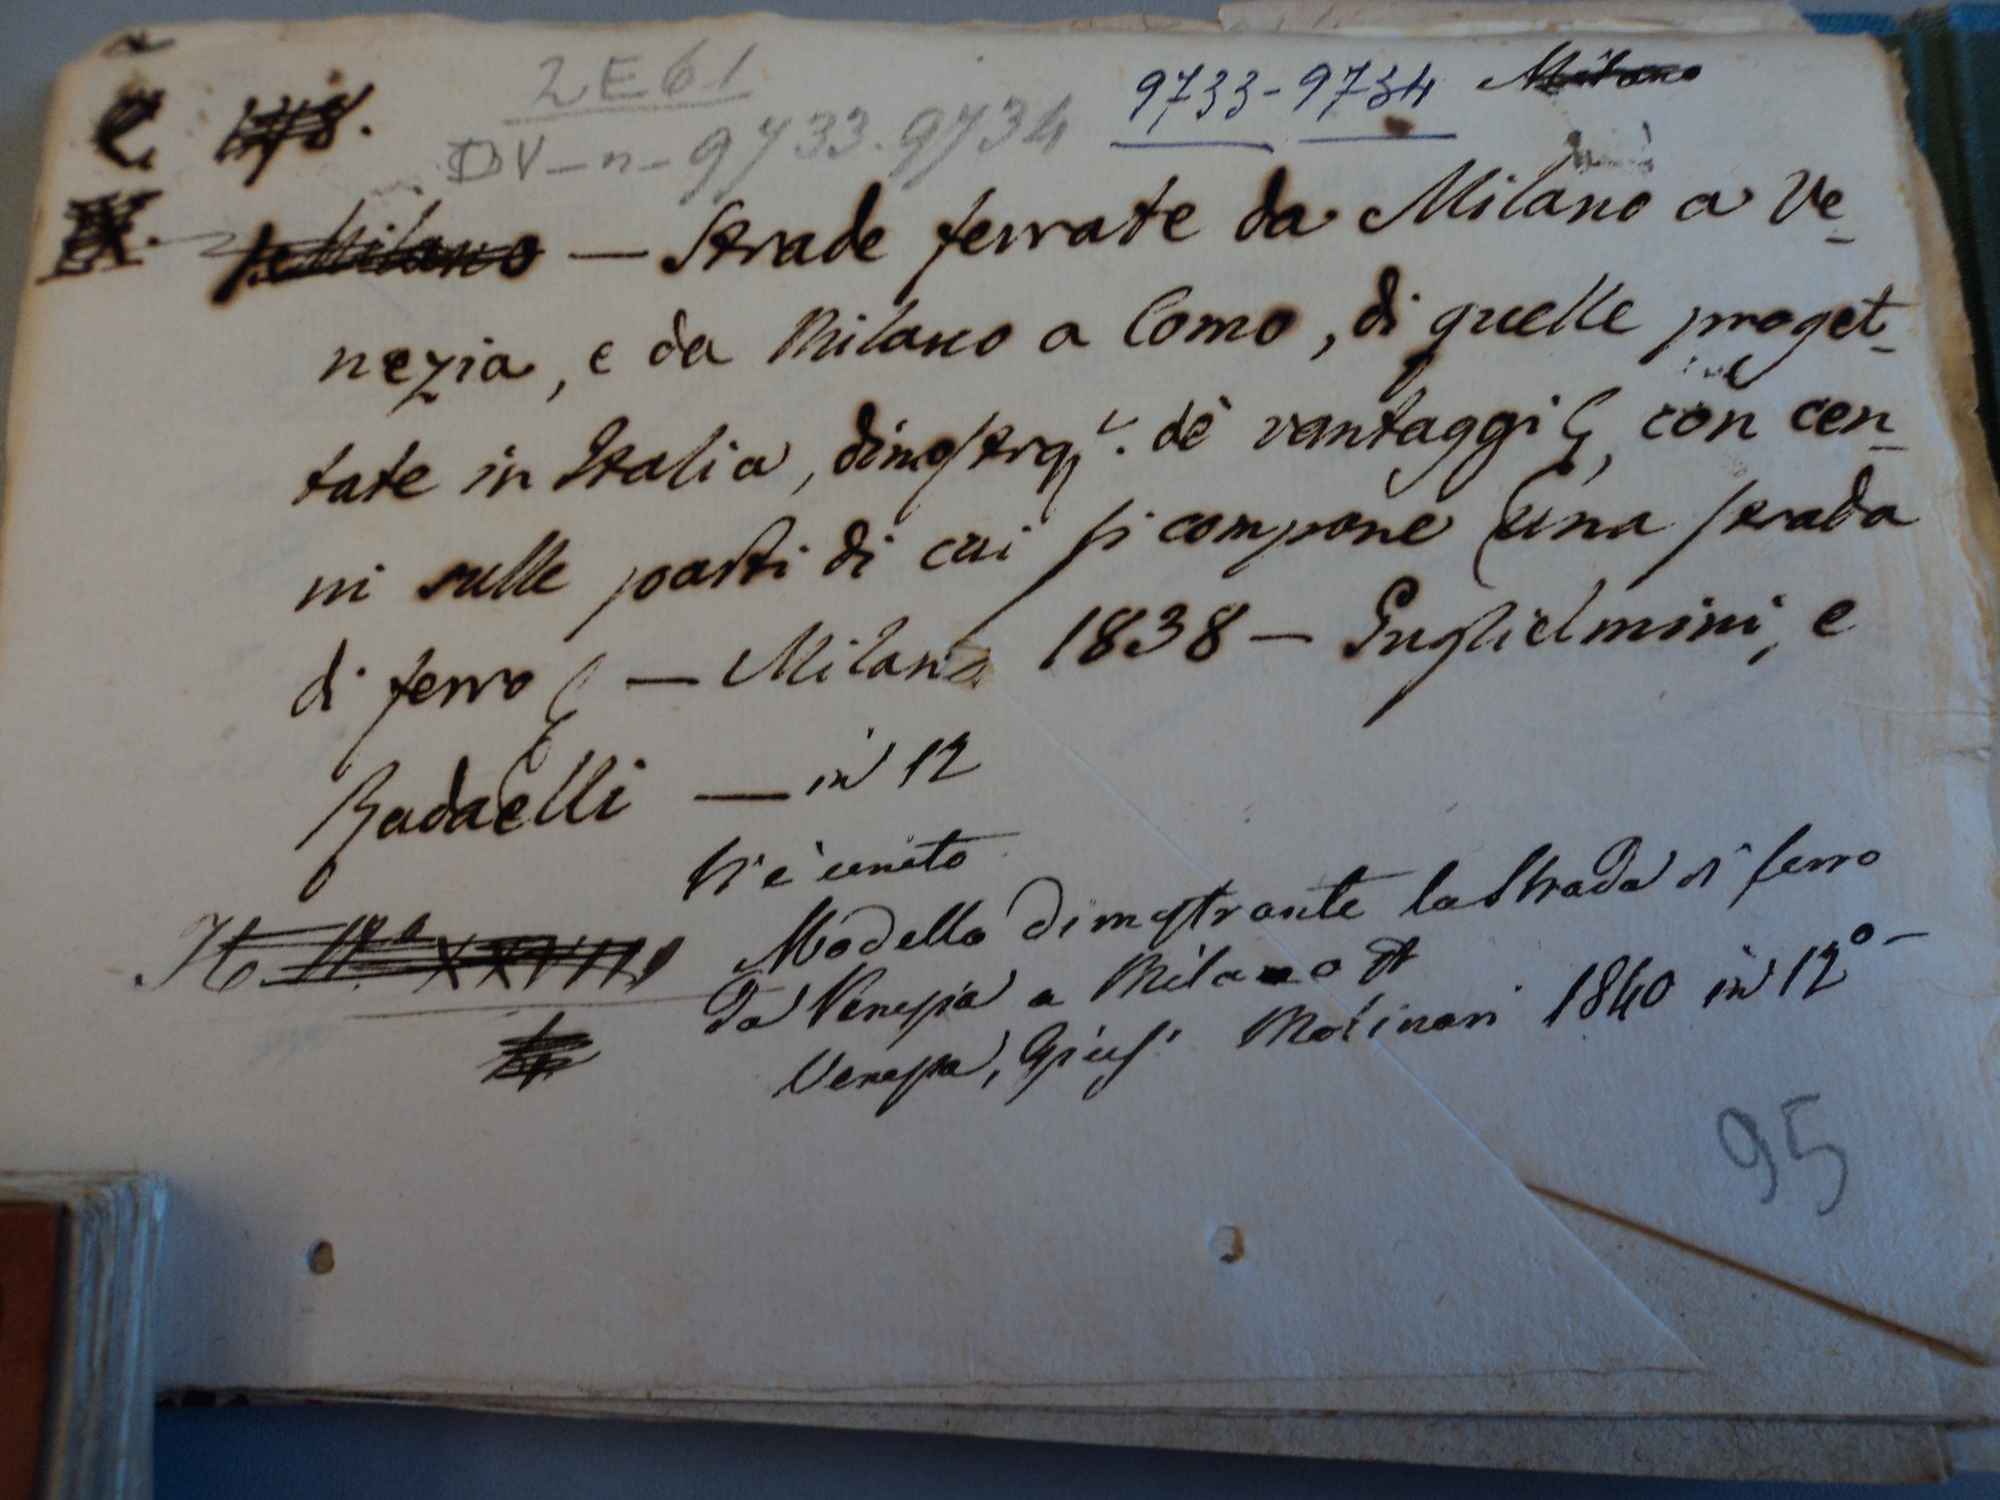 2E61
9733-9734 Milano
DV-n-9733.9734
Milano — Strade ferrate da Milano a Ve-
nezia, e da Milano a Como, di quelle proget-
tate in Italia, de' vantaggi, con cen-
ni sulle parti di cui si compone una strada
di ferro — Milano 1838 — Guglielmini, e
Radaelli — in 12
Vi è unito
Modello dimostrante la Strada di ferro
da Venezia a Milano
Venezia, Gius. Molinari 1840 in 12° —
95